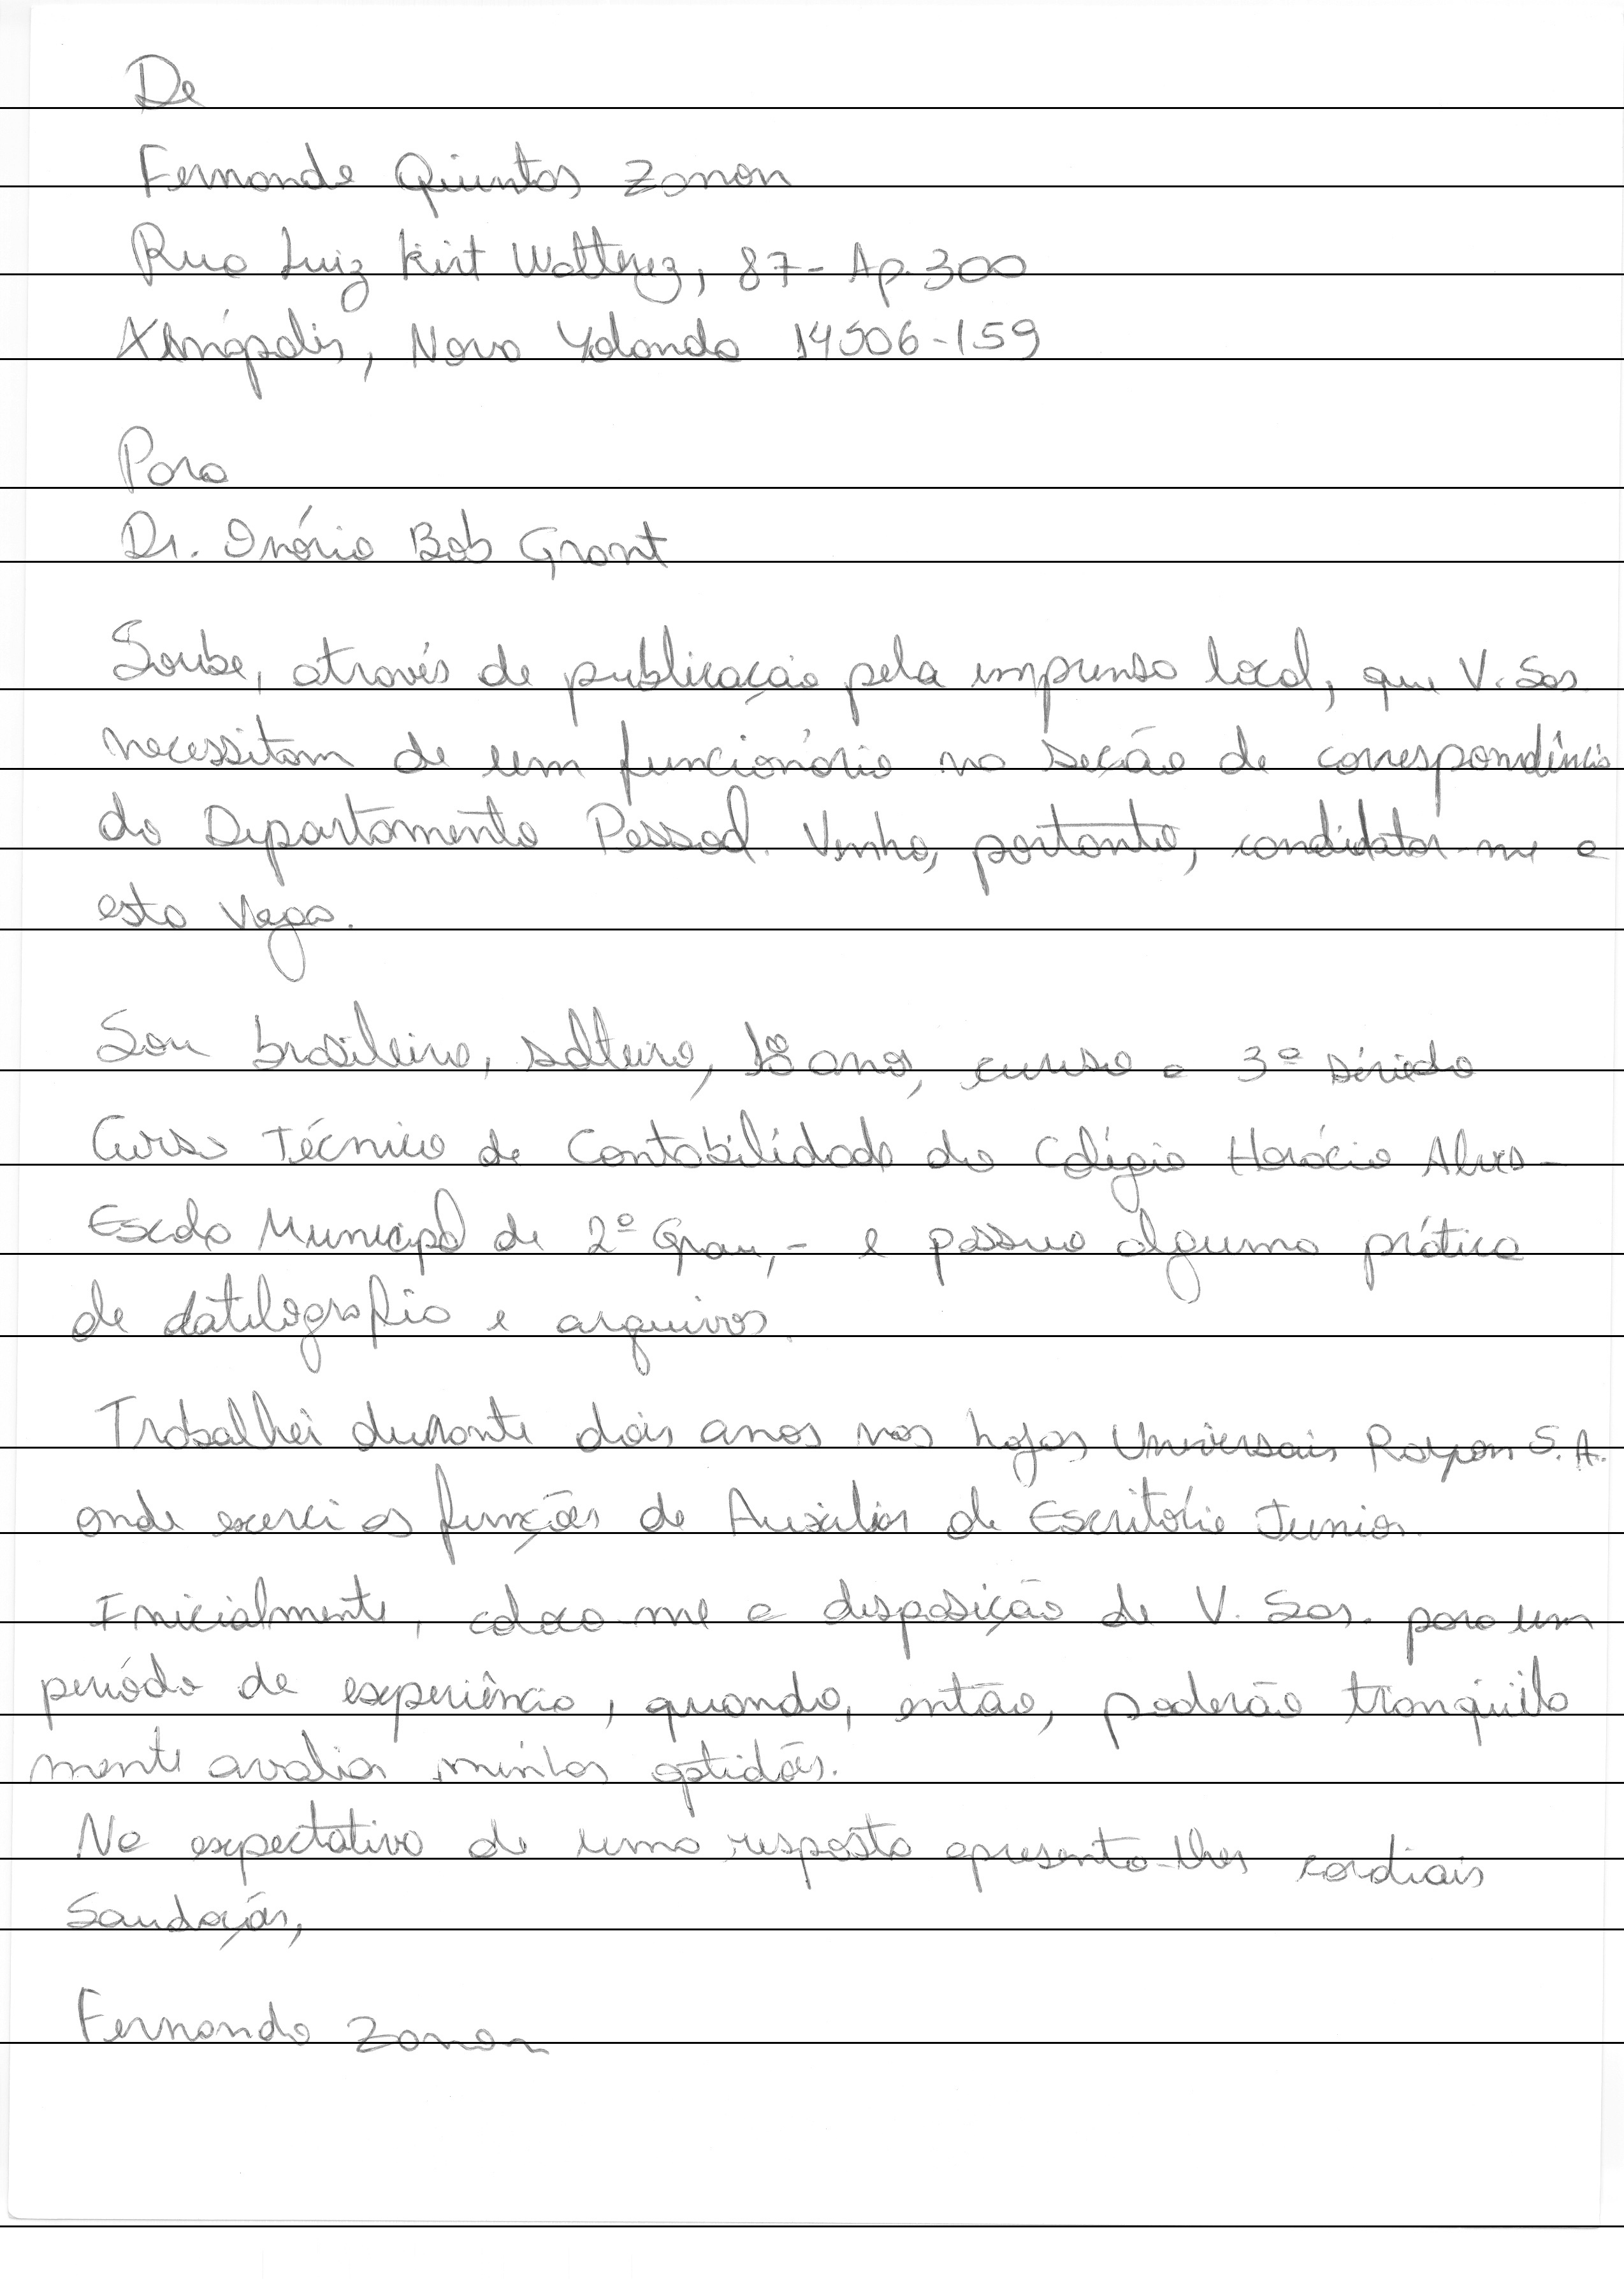 De
Fernando Quintos Zanon
Rua Luiz Kirt Walterez, 87 - Ap. 300
Xlnópolis, Nova Yolanda 14506-159
Para
Dr. Inório Bob Grant
Soube, através de publicação pela imprensa local, que V. Sas.
necessitam de um funcionário na seção de correspondência
do Departamento Pessoal. Venho, portanto, candidatar-me a
esta vaga.
Sou brasileiro, solteiro, 18 anos, curso a 3ª série do
Curso Técnico de Contabilidade do Colégio Horácio Alves -
Escola Municipal de 2º Grau, - e possuo alguma prática
de datilografia e arquivos.
Trabalhei durante dois anos nas Lojas Universais Raypon S. A.
onde exerci as funções de Auxiliar de Escritório Junior.
Inicialmente, coloco-me a disposição de V. Sas. para um
período de experiência, quando, então, poderão tranquila
mente avaliar minhas aptidões.
Na expectativa de uma resposta apresento-lhes cordiais
Saudações,
Fernando Zanon